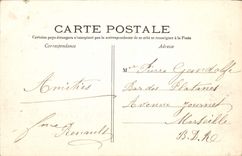 CARTE POSTALE
Certains pays étrangers n'acceptent pas la correspondance de ce côté, se renseigner à la Poste
Correspondance
Adresse
Amitiés
Renault
Pierre
Bar des Platanes
Avenue
Marseille
B.D.R